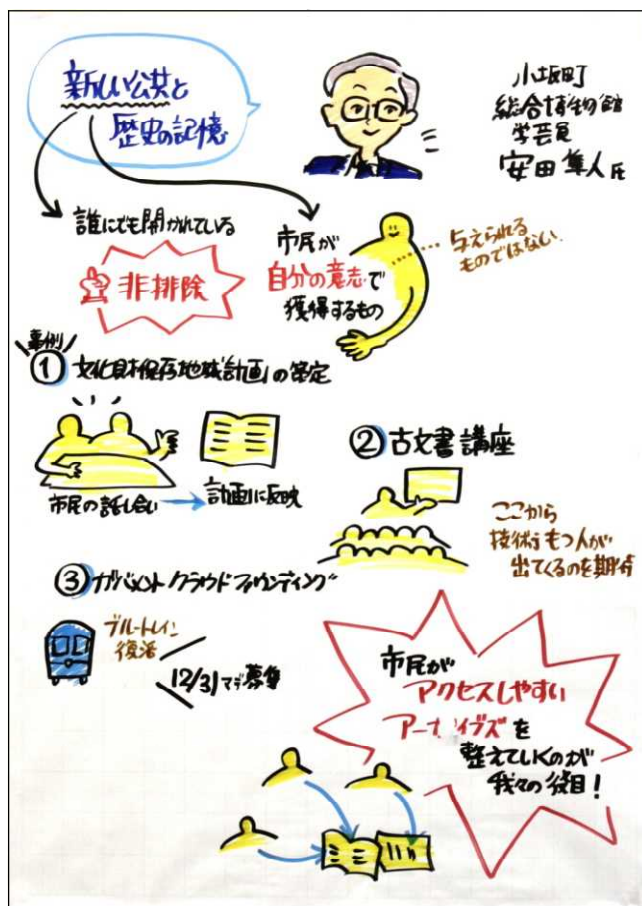 新しい公共と
歴史の記憶
小坂町
総合博物館
学芸員
安田隼人氏
誰にでも開かれている
非排除
市民が
自分の意志で
獲得するもの
与えられる
ものではない
事例
① 文化財保存地域計画の策定
市民の話し合い
計画に反映
② 古文書講座
ここから
技術もつ人が
出てくるのを期待
③ ガバメントクラウドファウンディング
ブルートレイン
復活
12/31マデ募集
市民が
アクセスしやすい
を
整えていくのが
我々の役目!